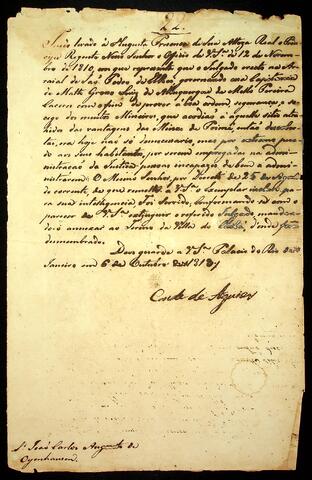 Tendo levado à Augusta Presença de Sua Alteza Real o Prin
cipe Regente Nosso Senhor o Officio de V.S.ª de 12 de Novem
bro de 1810, em que representa que o Julgado erecto no Ar
raial de São Pedro d'ElRei, governando essa Capitania
de Matto Grosso Luiz de Albuquerque de Mello Pereira
Caceres com o fim de prover á boa ordem, segurança, e so
cego dos muitos Mineiros, que acodião á aquelle sitio attra
hidos das vantagens das Minas de
hoje não só
aos seus habitantes, por serem empregadas na admi
nistração da Justiça pessoas incapazes de bem a admi
nistrarem: O Mesmo Senhor, por Decreto de 28 de Agosto
do corrente, de que remetto a V.S.ª o Exemplar incluso pa
ra sua intelligencia Foi Servido, Conformando-se com o
parecer de V.S.ª extinguir o referido Julgado mandan
do-o annexar ao Termo da Villa do Cuiabá, donde fora
desmembrado.
Deos guarde a V.S.ª Palacio do Rio de
Janeiro em 6 de Outubro de 1813
Conde de Aguiar
S.r João Carlos Augusto de
Oyenhausen